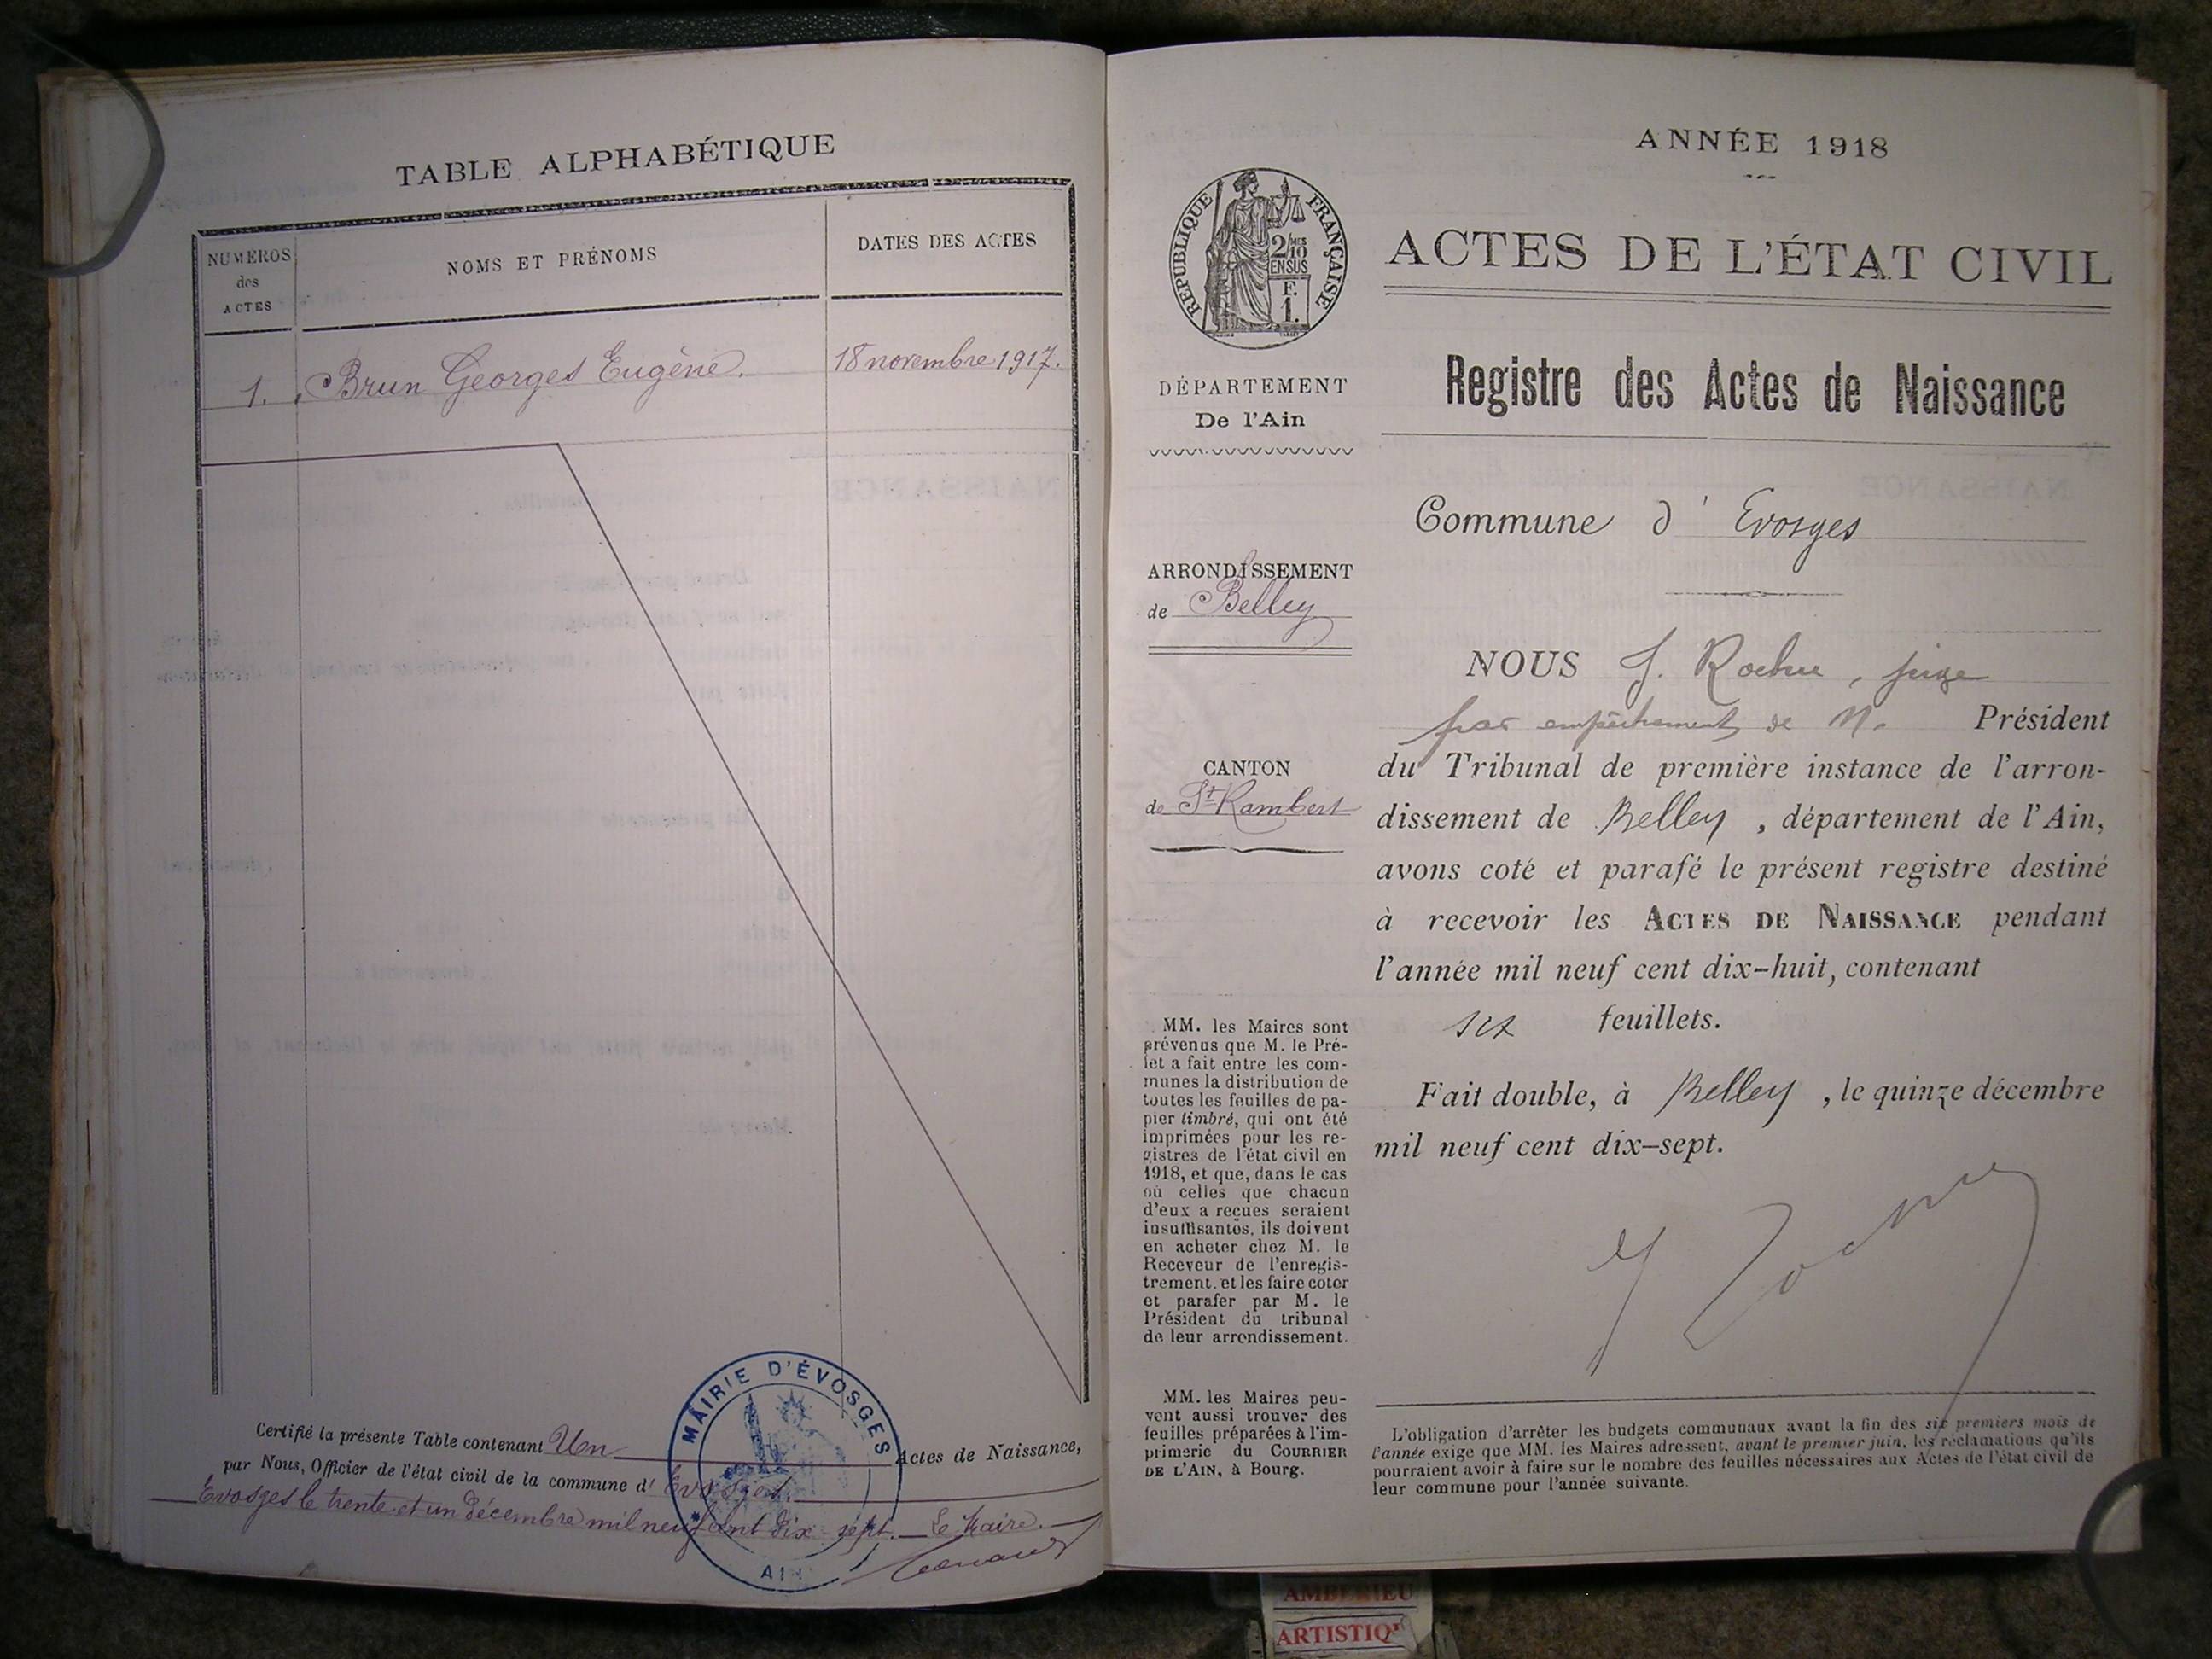 TABLE ALPHABÉTIQUE
NUMÉROS
des
ACTES
NOMS ET PRÉNOMS
DATES DES ACTES
1. Brun Georges Eugène. 18 novembre 1917.
Certifié la présente Table contenant Un Actes de Naissance,
par Nous, Officier de l'état civil de la commune d' Evosges.
Evosges le trente et un décembre mil neuf cent dix-sept. Le Maire.
MAIRIE D'ÉVOSGES
AIN
ANNÉE 1918
RÉPUBLIQUE FRANÇAISE
2/MES
10
EN SUS
F.
1.
ACTES DE L'ÉTAT CIVIL
Registre des Actes de Naissance
DÉPARTEMENT
De l'Ain
ARRONDISSEMENT
de Belley
CANTON
de St-Rambert
MM. les Maires sont
prévenus que M. le Pré-
fet a fait entre les com-
munes la distribution de
toutes les feuilles de pa-
pier timbré, qui ont été
imprimées pour les re-
gistres de l'état civil en
1918, et que, dans le cas
où celles que chacun
d'eux a reçues seraient
insuffisantes, ils doivent
en acheter chez M. le
Receveur de l'enregis-
trement, et les faire coter
et parafer par M. le
Président du tribunal
de leur arrondissement.
MM. les Maires peu-
vent aussi trouver des
feuilles préparées à l'im-
primerie du COURRIER
DE L'AIN, à Bourg.
Commune d' Evosges
NOUS J. , juge
par empêchement de M. Président
du Tribunal de première instance de l'arron-
dissement de Belley , département de l'Ain,
avons coté et parafé le présent registre destiné
à recevoir les ACTES DE NAISSANCE pendant
l'année mil neuf cent dix-huit, contenant
six feuillets.
Fait double, à Belley , le quinze décembre
mil neuf cent dix-sept.
L'obligation d'arrêter les budgets communaux avant la fin des six premiers mois de
l'année exige que MM. les Maires adressent, avant le premier juin, les réclamations qu'ils
pourraient avoir à faire sur le nombre des feuilles nécessaires aux Actes de l'état civil de
leur commune pour l'année suivante.
AMBERIEU
ARTISTIQ